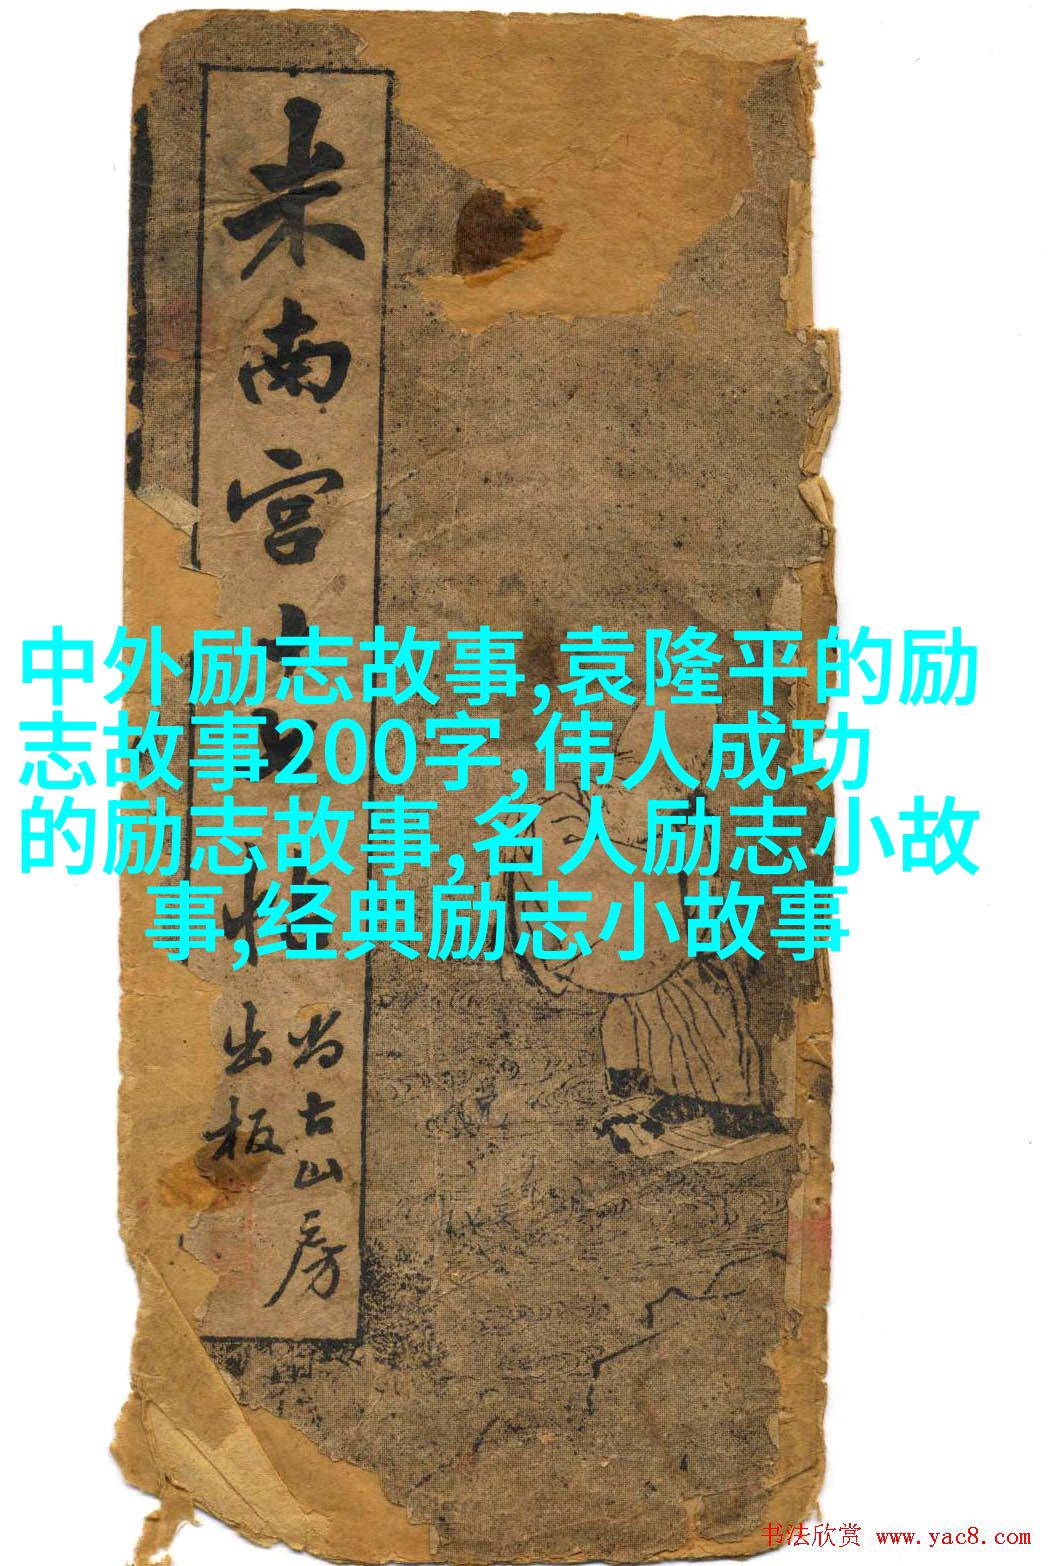 米南宫十七帖
尚古山房
出板
中外励志故事,袁隆平的励
志故事200字,伟人成功
的励志故事,名人励志小故
事,经典励志小故事
书法欣赏 www.yac8.com